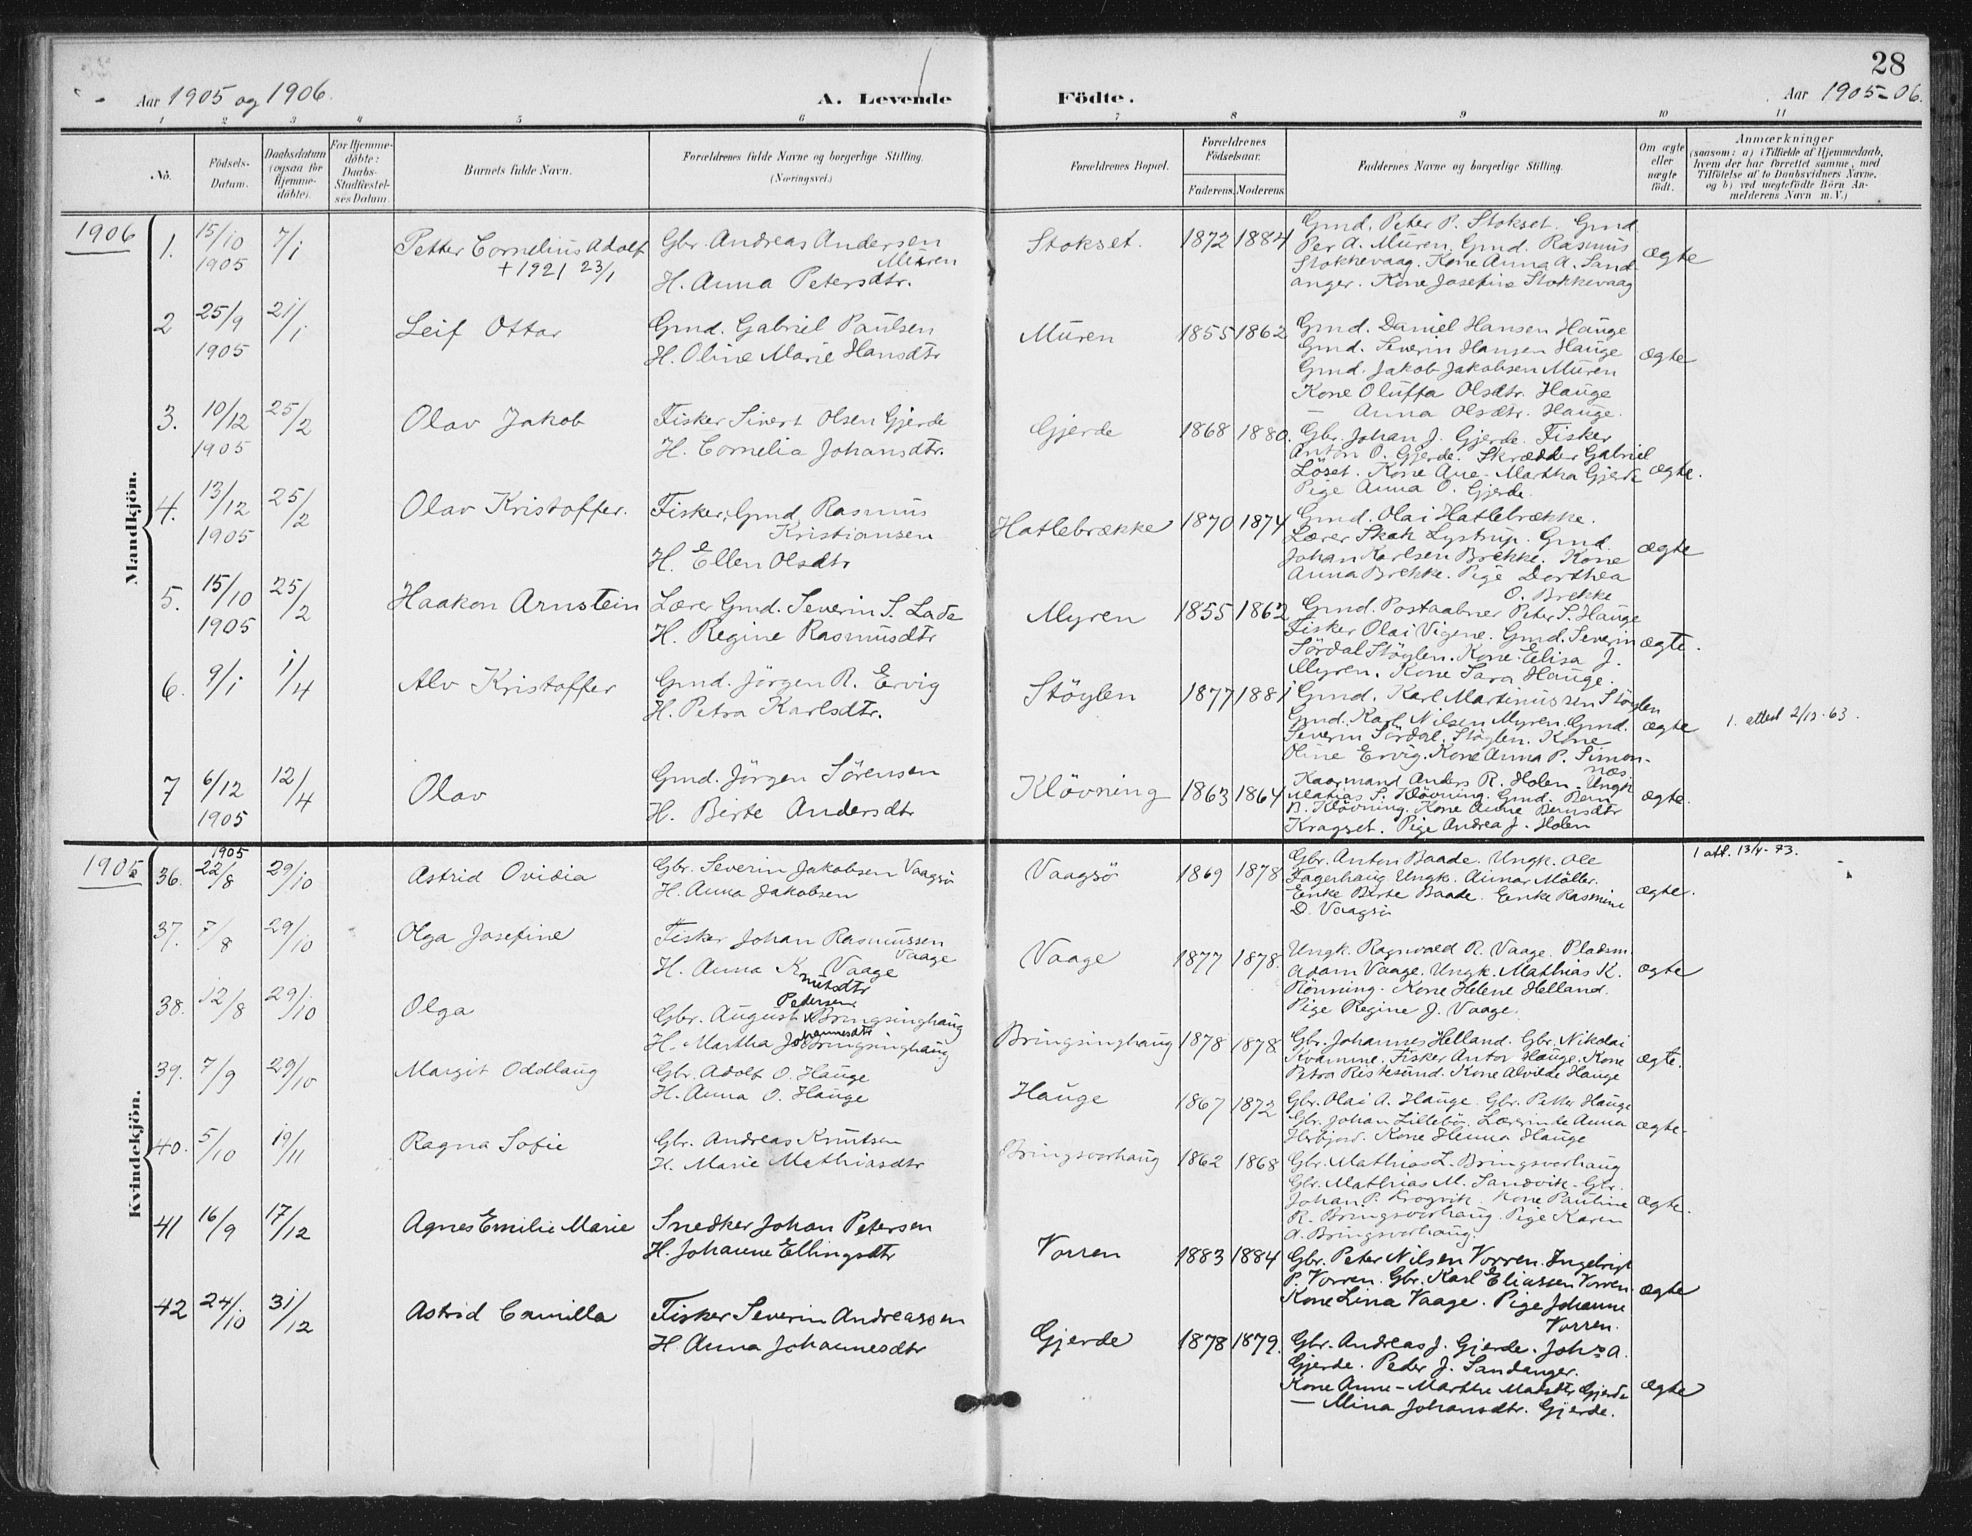 28
Aar 1905 og 1906.
A. Levende Födte.
Aar 1905-06.
1 2 3 4 5 6 7 8 9 10 11
No.
Födsels-Datum.
Daabsdatum (ogsaa for Hjemme-döbte).
For Hjemme-döbte: Daabs-Stadfæstel-ses Datum.
Barnets fulde Navn.
Forældrenes fulde Navne og borgerlige Stilling.
(Næringsvei.)
Forældrenes Bopæl.
Forældrenes Födselsaar.
Faderens. Moderens.
Faddernes Navne og borgerlige Stilling.
Om ægte eller uægte födt.
Anmærkninger
(saasom: a) i Tilfælde af Hjemmedaab,
hvem der har forrettet samme, med
Tilföielse af to Daabsvidners Navne,
og b) ved uægtefödte Börn An-
melderens Navn m.V.)
Mandkjön.
1906
1. 15/10 1905 7/1 Petter Cornelius Adolf
+ 1921 23/1
Gbr. Andreas Andersen
Muren
H. Anna Petersdtr.
Stokset. 1872 1884
Gmd. Peter P. Stokset. Gmd.
Per A. Muren. Gmd. Rasmus
Stokkevaag. Kone Anna A. Sand-
anger. Kone Josefine Stokkevaag
ægte
2 25/9 1905 21/1 Leif Ottar
Gmd. Gabriel Paulsen
H. Oline Marie Hansdtr
Muren 1855 1862
Gmd. Daniel Hansen Hauge
Gmd. Severin Hansen Hauge
Gmd. Jakob Jakobsen Muren
Kone Oluffa Olsdtr. Hauge
— Anna Olsdtr. Hauge.
ægte
3. 10/12 1905 25/2 Olav Jakob
Fisker Sivert Olsen Gjerde
H. Cornelia Johansdtr.
Gjerde 1868 1880.
Gbr. Johan J. Gjerde. Fisker
Anton O. Gjerde. Skrædder Gabriel
Löset. Kone Ane-Martha Gjerde
Pige Anna O. Gjerde.
ægte.
4. 13/12 1905 25/2 Olav Kristoffer.
Fisker, Gmd Rasmus
Kristiansen
H. Ellen Olsdtr
Hatlebrække 1870 1874
Gmd. Olai Hatlebrække.
Lærer Lystrup. Gmd.
Johan Karlsen Brekke. Kone
Anna Brekke. Pige Dorthea
O. Brekke
ægte
5. 15/10 1905 25/2 Haakon Arnstein
Lærer Gmd. Severin S. Lade
H. Regine Rasmusdtr
Myren 1855 1862
Gmd. Postaabner Peter S. Hauge
Fisker Olai Vigene. Gmd. Severin
Sördal Stöylen. Kone Elisa J.
Myren. Kone Sara Hauge.
ægte.
6. 9/1 1/4 Alv Kristoffer
Gmd. Jörgen R. Ervig
H. Petra Karlsdtr.
Stöylen 1877 1881
Gmd. Karl Martinussen Stöylen
Gmd. Karl Nilsen Myren. Gmd.
Severin Sördal, Stöylen. Kone
Oline Ervig. Kone Anna P. Simon-
næs
ægte
1. attest 2/12-63.
7 6/12 1905 12/4 Olav
Gmd. Jörgen Sörensen
H. Birte Andersdtr
Klövning 1863 1864
Kaarmand Anders R. Holen. Ungk
Matias S. Klövning. Gmd. Bern
B. Klövning. Kone Anne Berntsdtr
Kragset. Pige Andrea J. Holen
ægte.
Kvindekjön.
1905
36. 1905 22/8 29/10 Astrid Ovidia
Gbr. Severin Jakobsen Vaagsö
H. Anna Jakobsen
Vaagsö 1869 1878
Gbr. Anton Baade. Ungk. Ole
Fagerhaug Ungk. Möller.
Enke Birte Baade. Enke Rasmine
D. Vaagsö
ægte.
1 att. 13/4-83.
37. 7/8 29/10 Olga Josefine
Fisker Johan Rasmussen
Vaage
H. Anna Knutsdtr Vaage
Vaage 1877 1878.
Ungk. Ragnvald R. Vaage. Pladsm.
Adam Vaage. Ungk. Mathias K.
Rönning. Kone Helene Helland.
Pige Regine J. Vaage.
ægte
38. 12/8 29/10 Olga
Pedersen
Gbr. August Bringsinghaug
H. Martha Johannesdtr Bringsinghaug
Bringsinghaug 1878 1878
Gbr. Johannes Helland. Gbr. Nikolai
Kvamme. Fisker Anton Hauge. Kone
Petra Ristesund. Kone Alvilde Hauge
ægte.
39. 7/9 29/10 Margit Oddlaug
Gbr. Adolf O. Hauge
H. Anna O. Hauge
Hauge 1867 1872
Gbr. Olai A. Hauge. Gbr. Petter Hauge
Gbr. Johan Lillebö. Lærerinde Anna
Herbjorn. Kone Henna Hauge
ægte.
40. 5/10 19/11 Ragna Sofie
Gbr. Andreas Knutsen
H. Marie Mathiasdtr
Bringsvorhaug 1862 1868
Gbr. Mathias L. Bringsvorhaug
Gbr. Mathias M. Sandvik. Gbr.
Johan P. Krogvik. Kone Pauline
R. Bringsvorhaug. Pige Karen
A. Bringsvorhaug.
ægte.
41 16/9 17/12 Agnes Emilie Marie
Snedker Johan Petersen
H. Johanne Ellingsdtr
Vorren 1883 1884
Gbr. Peter Nilsen Vorren. Ingebrigt
P. Vorren. Gbr. Karl Eliassen Vorren
Kone Lina Vaage. Pige Johanne
Vorren.
ægte
42 24/10 31/12 Astrid Camilla
Fisker Severin Andreassen
H. Anna Johannesdtr
Gjerde 1878 1879.
Gbr. Andreas J. Gjerde. Johs A.
Gjerde. Peder J. Sandanger.
Kone Anne-Marthe Madsdtr Gjerde
— Mina Johansdtr. Gjerde.
ægte